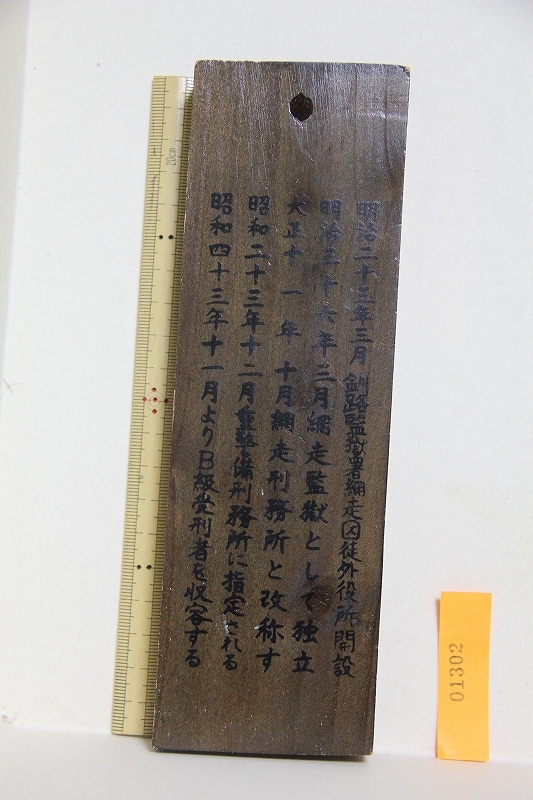 明治二十三年三月 釧路監獄署網走囚徒外役所開設
明治三十六年三月網走監獄として独立
大正十一年十月網走刑務所と改称す
昭和二十三年十二月重警備刑務所に指定される
昭和四十三年十一月よりB級受刑者を収容する
20cm
01302